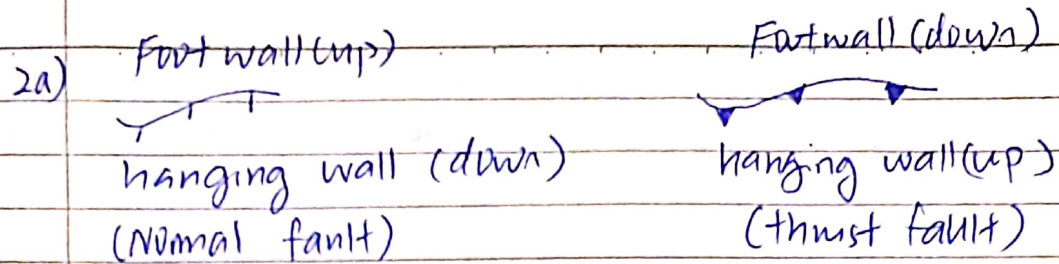 2a)
Footwall (up)
hanging wall (down)
(Normal fault)
Footwall (down)
hanging wall (up)
(thrust fault)